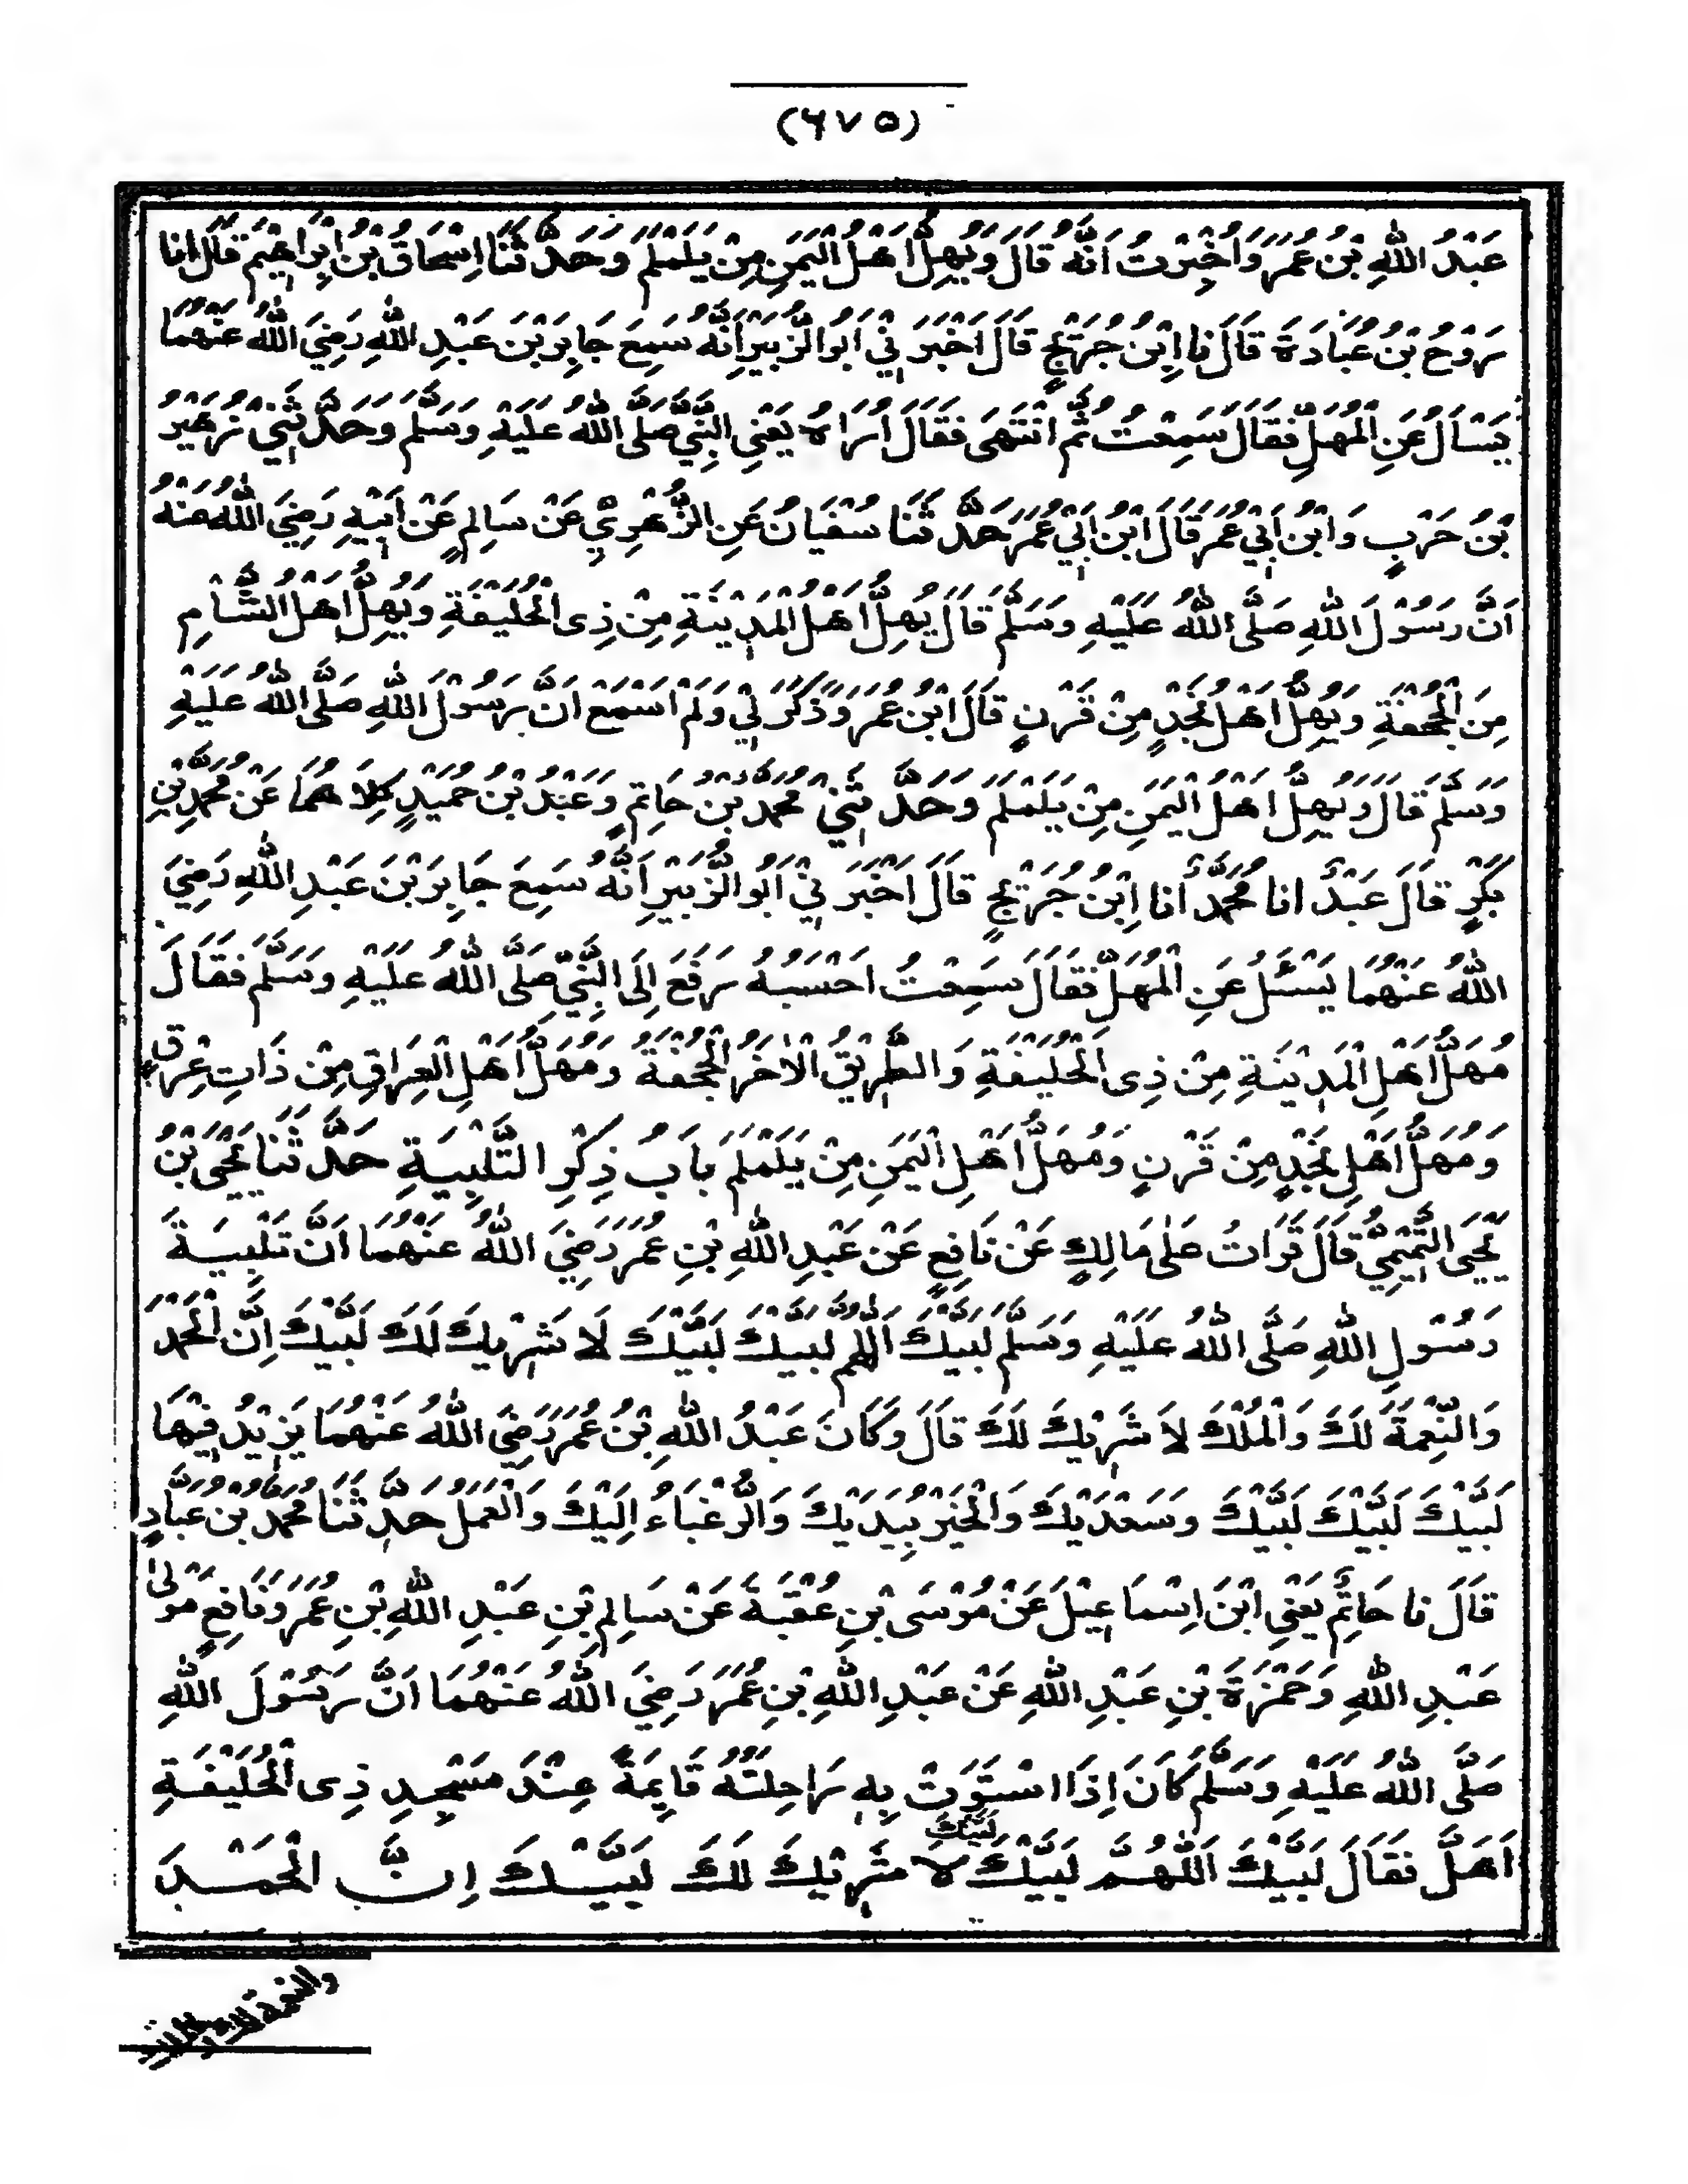 (٦٧٥)
عَبْدُ اللّٰهِ بْنُ عُمَرَ وَاُخْبِرْتُ اَنَّهُ قَالَ وَيُهِلُّ اَهْلُ الْيَمَنِ مِنْ يَلَمْلَمَ وَحَدَّثَنَا اِسْحَاقُ بْنُ اِبْرَاهِيْمَ قَالَ انا
رَوْحُ بْنُ عُبَادَةَ قَالَ نا اِبْنُ جُرَيْجٍ قَالَ اَخْبَرَنِيْ اَبُو الزُّبَيْرِ اَنَّهُ سَمِعَ جَابِرَ بْنَ عَبْدِ اللّٰهِ رَضِيَ اللّٰهُ عَنْهُمَا
يَسْأَلُ عَنِ الْمُهَلِّ فَقَالَ سَمِعْتُ ثُمَّ انْتَهَى فَقَالَ اُرَاهُ يَعْنِي النَّبِيَّ صَلَّى اللّٰهُ عَلَيْهِ وَسَلَّمَ وَحَدَّثَنِيْ زُهَيْرُ
بْنُ حَرْبٍ وَابْنُ اَبِيْ عُمَرَ قَالَ ابْنُ اَبِيْ عُمَرَ حَدَّثَنَا سُفْيَانُ عَنِ الزُّهْرِيِّ عَنْ سَالِمٍ عَنْ اَبِيْهِ رَضِيَ اللّٰهُ عَنْهُ
اَنَّ رَسُوْلَ اللّٰهِ صَلَّى اللّٰهُ عَلَيْهِ وَسَلَّمَ قَالَ يُهِلُّ اَهْلُ الْمَدِيْنَةِ مِنْ ذِى الْحُلَيْفَةِ وَيُهِلُّ اَهْلُ الشَّامِ
مِنَ الْجُحْفَةِ وَيُهِلُّ اَهْلُ نَجْدٍ مِنْ قَرْنٍ قَالَ ابْنُ عُمَرَ وَذُكِرَ لِيْ وَلَمْ اَسْمَعْ اَنَّ رَسُوْلَ اللّٰهِ صَلَّى اللّٰهُ عَلَيْهِ
وَسَلَّمَ قَالَ وَيُهِلُّ اَهْلُ الْيَمَنِ مِنْ يَلَمْلَمَ وَحَدَّثَنِيْ مُحَمَّدُ بْنُ حَاتِمٍ وَعَبْدُ بْنُ حُمَيْدٍ كِلَاهُمَا عَنْ مُحَمَّدِ بْنِ
بَكْرٍ قَالَ عَبْدٌ انا مُحَمَّدٌ أنا اِبْنُ جُرَيْجٍ قَالَ اَخْبَرَنِيْ اَبُو الزُّبَيْرِ اَنَّهُ سَمِعَ جَابِرَ بْنَ عَبْدِ اللّٰهِ رَضِيَ
اللّٰهُ عَنْهُمَا يَسْئَلُ عَنِ الْمُهَلِّ فَقَالَ سَمِعْتُ اَحْسَبُهُ رَفَعَ اِلَى النَّبِيِّ صَلَّى اللّٰهُ عَلَيْهِ وَسَلَّمَ فَقَالَ
مُهَلُّ اَهْلِ الْمَدِيْنَةِ مِنْ ذِى الْحُلَيْفَةِ وَالطَّرِيْقُ الْاٰخَرُ الْجُحْفَةُ وَمُهَلُّ اَهْلِ الْعِرَاقِ مِنْ ذَاتِ عِرْقٍ
وَمُهَلُّ اَهْلِ نَجْدٍ مِنْ قَرْنٍ وَمُهَلُّ اَهْلِ الْيَمَنِ مِنْ يَلَمْلَمَ بَابُ ذِكْرِ التَّلْبِيَةِ حَدَّثَنَا يَحْيَى بْنُ
يَحْيَى التَّمِيْمِيُّ قَالَ قَرَاتُ عَلٰى مَالِكٍ عَنْ نَافِعٍ عَنْ عَبْدِ اللّٰهِ بْنِ عُمَرَ رَضِيَ اللّٰهُ عَنْهُمَا اَنَّ تَلْبِيَةَ
رَسُوْلِ اللّٰهِ صَلَّى اللّٰهُ عَلَيْهِ وَسَلَّمَ لَبَّيْكَ اللّٰهُمَّ لَبَّيْكَ لَبَّيْكَ لَا شَرِيْكَ لَكَ لَبَّيْكَ اِنَّ الْحَمْدَ
وَالنِّعْمَةَ لَكَ وَالْمُلْكَ لَا شَرِيْكَ لَكَ قَالَ وَكَانَ عَبْدُ اللّٰهِ بْنُ عُمَرَ رَضِيَ اللّٰهُ عَنْهُمَا يَزِيْدُ فِيْهَا
لَبَّيْكَ لَبَّيْكَ لَبَّيْكَ وَسَعْدَيْكَ وَالْخَيْرُ بِيَدَيْكَ وَالرَّغْبَاءُ اِلَيْكَ وَالْعَمَلُ حَدَّثَنَا مُحَمَّدُ بْنُ عَبَّادٍ
قَالَ نا حَاتِمٌ يَعْنِي ابْنَ اِسْمَاعِيْلَ عَنْ مُوْسَى بْنِ عُقْبَةَ عَنْ سَالِمِ بْنِ عَبْدِ اللّٰهِ بْنِ عُمَرَ وَنَافِعٍ مَوْلٰى
عَبْدِ اللّٰهِ وَحَمْزَةَ بْنِ عَبْدِ اللّٰهِ عَنْ عَبْدِ اللّٰهِ بْنِ عُمَرَ رَضِيَ اللّٰهُ عَنْهُمَا اَنَّ رَسُوْلَ اللّٰهِ
صَلَّى اللّٰهُ عَلَيْهِ وَسَلَّمَ كَانَ اِذَا اسْتَوَتْ بِهِ رَاحِلَتُهُ قَايِمَةً عِنْدَ مَسْجِدِ ذِى الْحُلَيْفَةِ
لَبَّيْكَ
اَهَلَّ فَقَالَ لَبَّيْكَ اللّٰهُمَّ لَبَّيْكَ لَا شَرِيْكَ لَكَ لَبَّيْكَ اِنَّ الْحَمْدَ
والنعمة لك